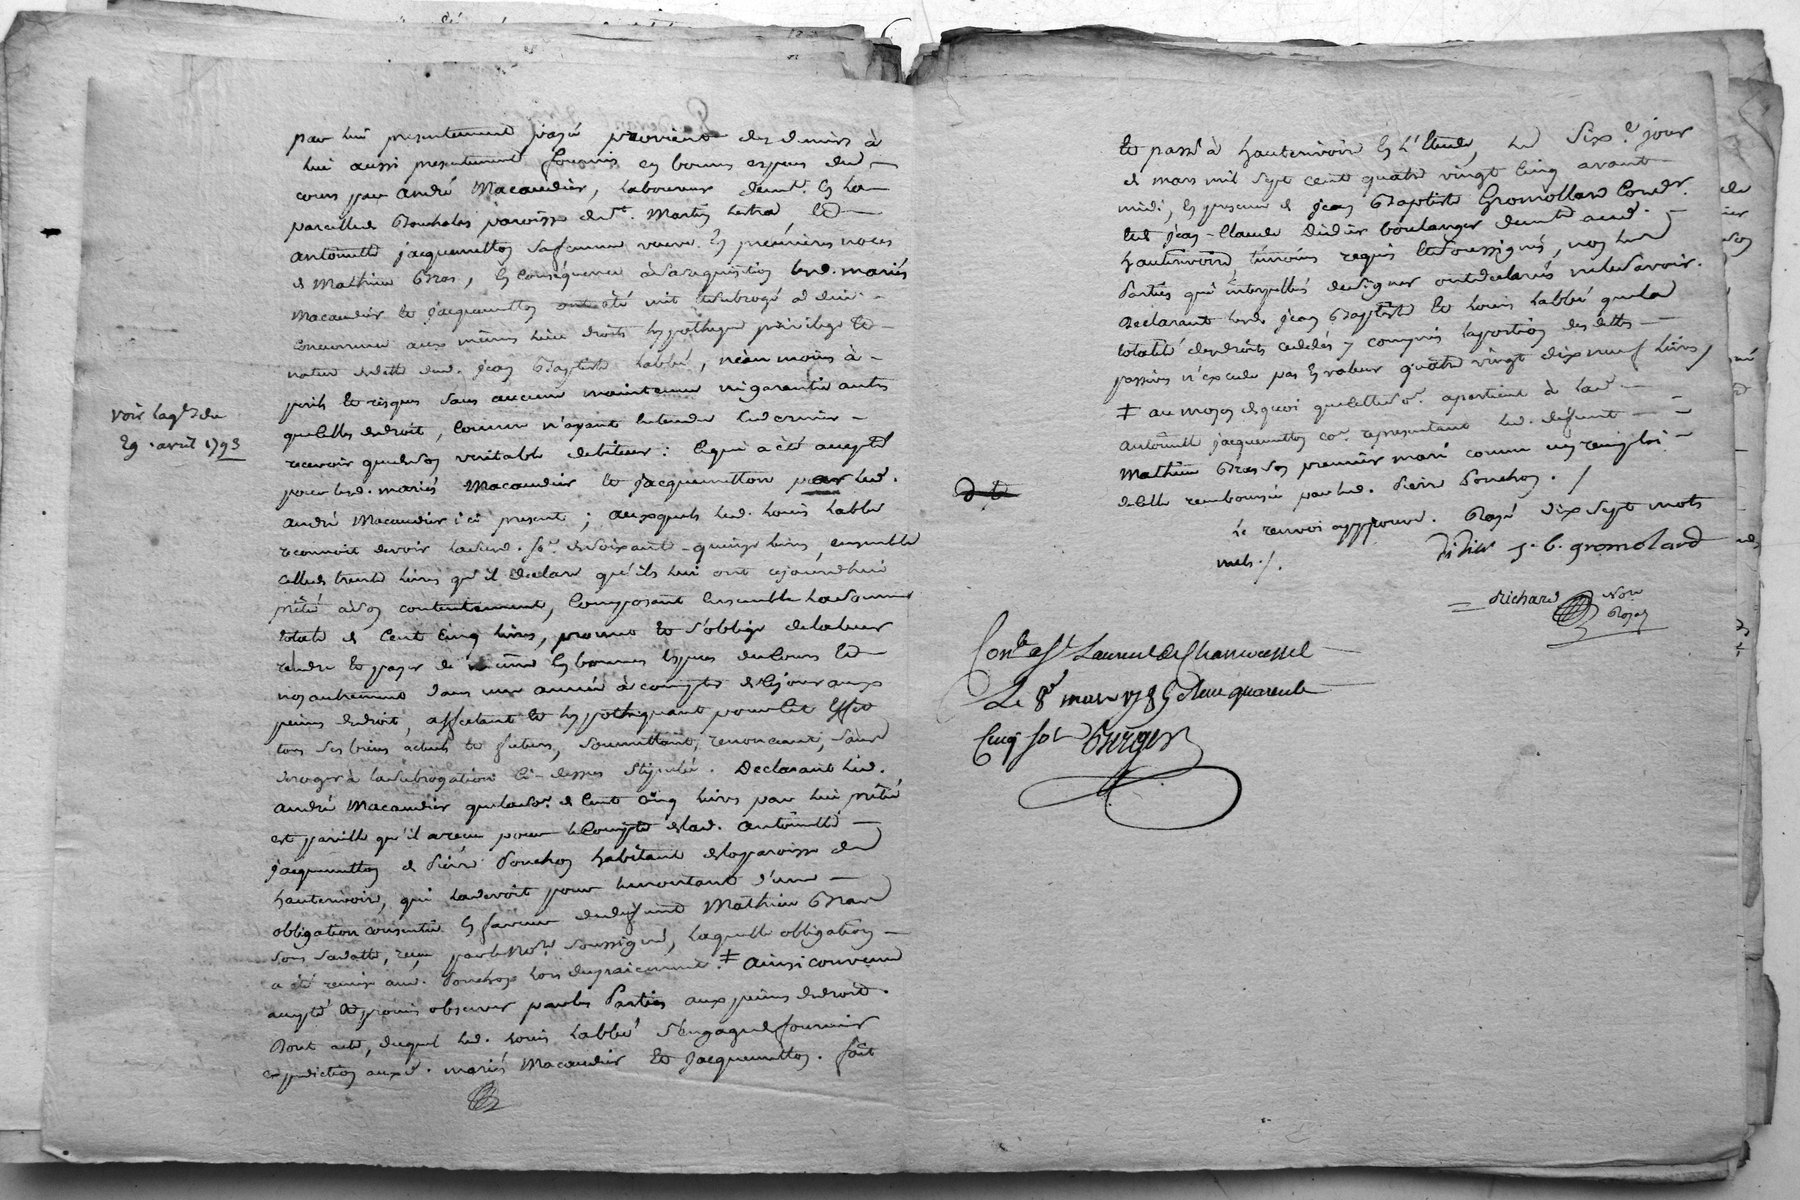 par lui presentement payé provient des deniers à
lui aussi presentement fournis en bonnes especes du
cours par andré Macaudier, laboureur demt. en la
parcelle de paroisse de st. Martin lestra et
antoinette jacquemetton sa femme veuve en premieres noces
de Mathieu Bras, en consequence à sa requisition lesd. mariés
Macaudier et jacquemetton été mit et subrogé ad
concurrence aux mêmes lieu droits hypotheque privilege et
nature de dette dud. jean Baptiste labbé, néan moins à
perils et risques sans aucune maintenue ni garantie autre
que celles de droit, comme n'ayant entendu led. dernier
voir lad. du
29. avril 1793
recevoir que de son veritable debiteur : ce qui a été accepté
pour lesd. mariés Macaudier et jacquemetton par led.
andré Macaudier ici present ; auxquels led. louis labbé
reconnoit devoir lasusd. se. de soixante-quinze livres, ensemble
celle de trente livres qu'il declare qu'ils lui ont cejourdhui
prêté à son contentement, composant ensemble la somme
totale de cent cinq livres, promet et s'oblige de la leur
rendre et payer de même en bonnes especes du cours et
non autrement dans une année à compter de ce jour aux
peines de droit, affectant et hypothequant pour cet effet
tous ses biens actuels et futurs, soumettant, renonceant, sans
deroger à la subrogation ci-dessus stipulée. Declarant led.
andré Macaudier que la so. de cent cinq livres par lui prêtée
est pareille qu'il a reçu pour le compte de lad. antoinette
jacquemetton de Pierre Ponchon habitant de la paroisse de
hauterivoire, qui la devoit pour le montant d'une
obligation consentie en faveur dudefunt Mathieu Bras
sous sa datte, reçue par le Nore. soussigné, laquelle obligation
a été remise aud. Ponchon lors du paiement. ‡ ainsi convenu
accepté et promis observer par les Parties aux peines de droit.
Dont acte, duquel led. louis labbé s'engage de fournir
expedition auxd. mariés Macaudier et Jacquemetton. fait
et passé à hauterivoire en l'Etude, le six.e jour
de mars mil sept cent quatre vingt cinq avant
midi, en presence de jean Baptiste Gromollard Cordr.
et de jean-Claude Didier boulanger demt. aud.
hauterivoire temoins requis et soussignés, non les
Parties qui interpellés de signer ont declarés ne le savoir.
Declarant lesd. jean Baptiste et louis labbé que la
totalité des droits cedés y compris la portion des dettes
passives n'excede pas en valeur quatre vingt dix neuf livres /
‡ au moyen de quoi que cette so. apartient à lad.
antoinette jacquemetton co. representant led. defunt
Mathieu Bras son premier mari comme un remploi
de celle remboursée par led. Pierre Ponchon. /
le renvoi approuvé. Rayé dix sept mots
nuls /.
didier j. b. gromolard
Richard Nore
Royal
Conlé à St Laurent de Chamousset
Le 8 mars 1785 Reçu quarente
cinq sols Berger